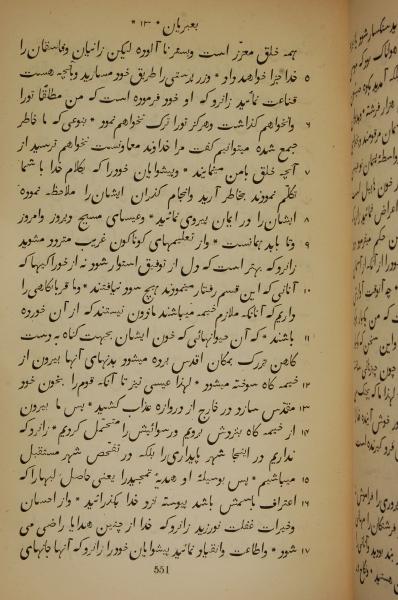 بعبریان * ۱۳ *
همه خلق معزز است وبستر نا آلوده لیکن زانیان وفاسقان را
۵ خدا جزا خواهد داد * وزر پرستی را طریق خود مسازید وبآنچه هست
قناعت نمائید زانرو که او خود فرموده است که من مطلقًا ترا
۶ وانخواهم گذاشت وهرگز ترا ترک نخواهم نمود * بنوعی که ما خاطر
جمع شده میتوانیم گفت مرا خداوند معاونست نخواهم ترسید از
۷ آنچه خلق بامن مینمایند * وپیشوایان خود را که بکلام خدا با شما
تکلّم نمودند بخاطر آرید وانجام گذران ایشان را ملاحظه نموده
۸ ایشان را در ایمان پیروی نمائید * وعیسای مسیح دیروز وامروز
۹ وتا بابد همانست * واز تعلیمهای گوناگون غریب متردد مشوید
زانرو که بهتر است که دل از توفیق استوار شود نه از خوراکیها که
۱۰ آنانی که این قسم رفتار مینمودند هیچ سود نیافتند * وما قربانگاهی را
داریم که آنانکه ملازم خیمه میباشند ماذون نیستند که از آن خورده
۱۱ باشند * که آن حیواناتی که خون ایشان بجهت گناه بدست
کاهن بزرگ بمکان اقدس برده میشود بدنهای آنها بیرون از
۱۲ خیمه گاه سوخته میشود * لهذا عیسی نیز تا آنکه قوم را بخون خود
۱۳ مقدس سازد در خارج از دروازه عذاب کشید * پس ما بیرون
۱۴ از خیمه گاه بنزدش برویم ورسوائیش را متحمل گردیم * زانرو که
نداریم در اینجا شهر پایداری را بلکه در تفحص شهر مستقبل
۱۵ میباشیم * پس بوسیلهٔ او هدیهٔ تمجید را یعنی حاصل لبها را که
۱۶ اعتراف باسمش باشد پیوسته نزد خدا بگذرانید * واز احسان
وخیرات غفلت نورزید زانرو که خدا از چنین هدایا راضی می
۱۷ شود * واطاعت وانقیاد نمائید پیشوایان خود را زانرو که آنها جانهای
551